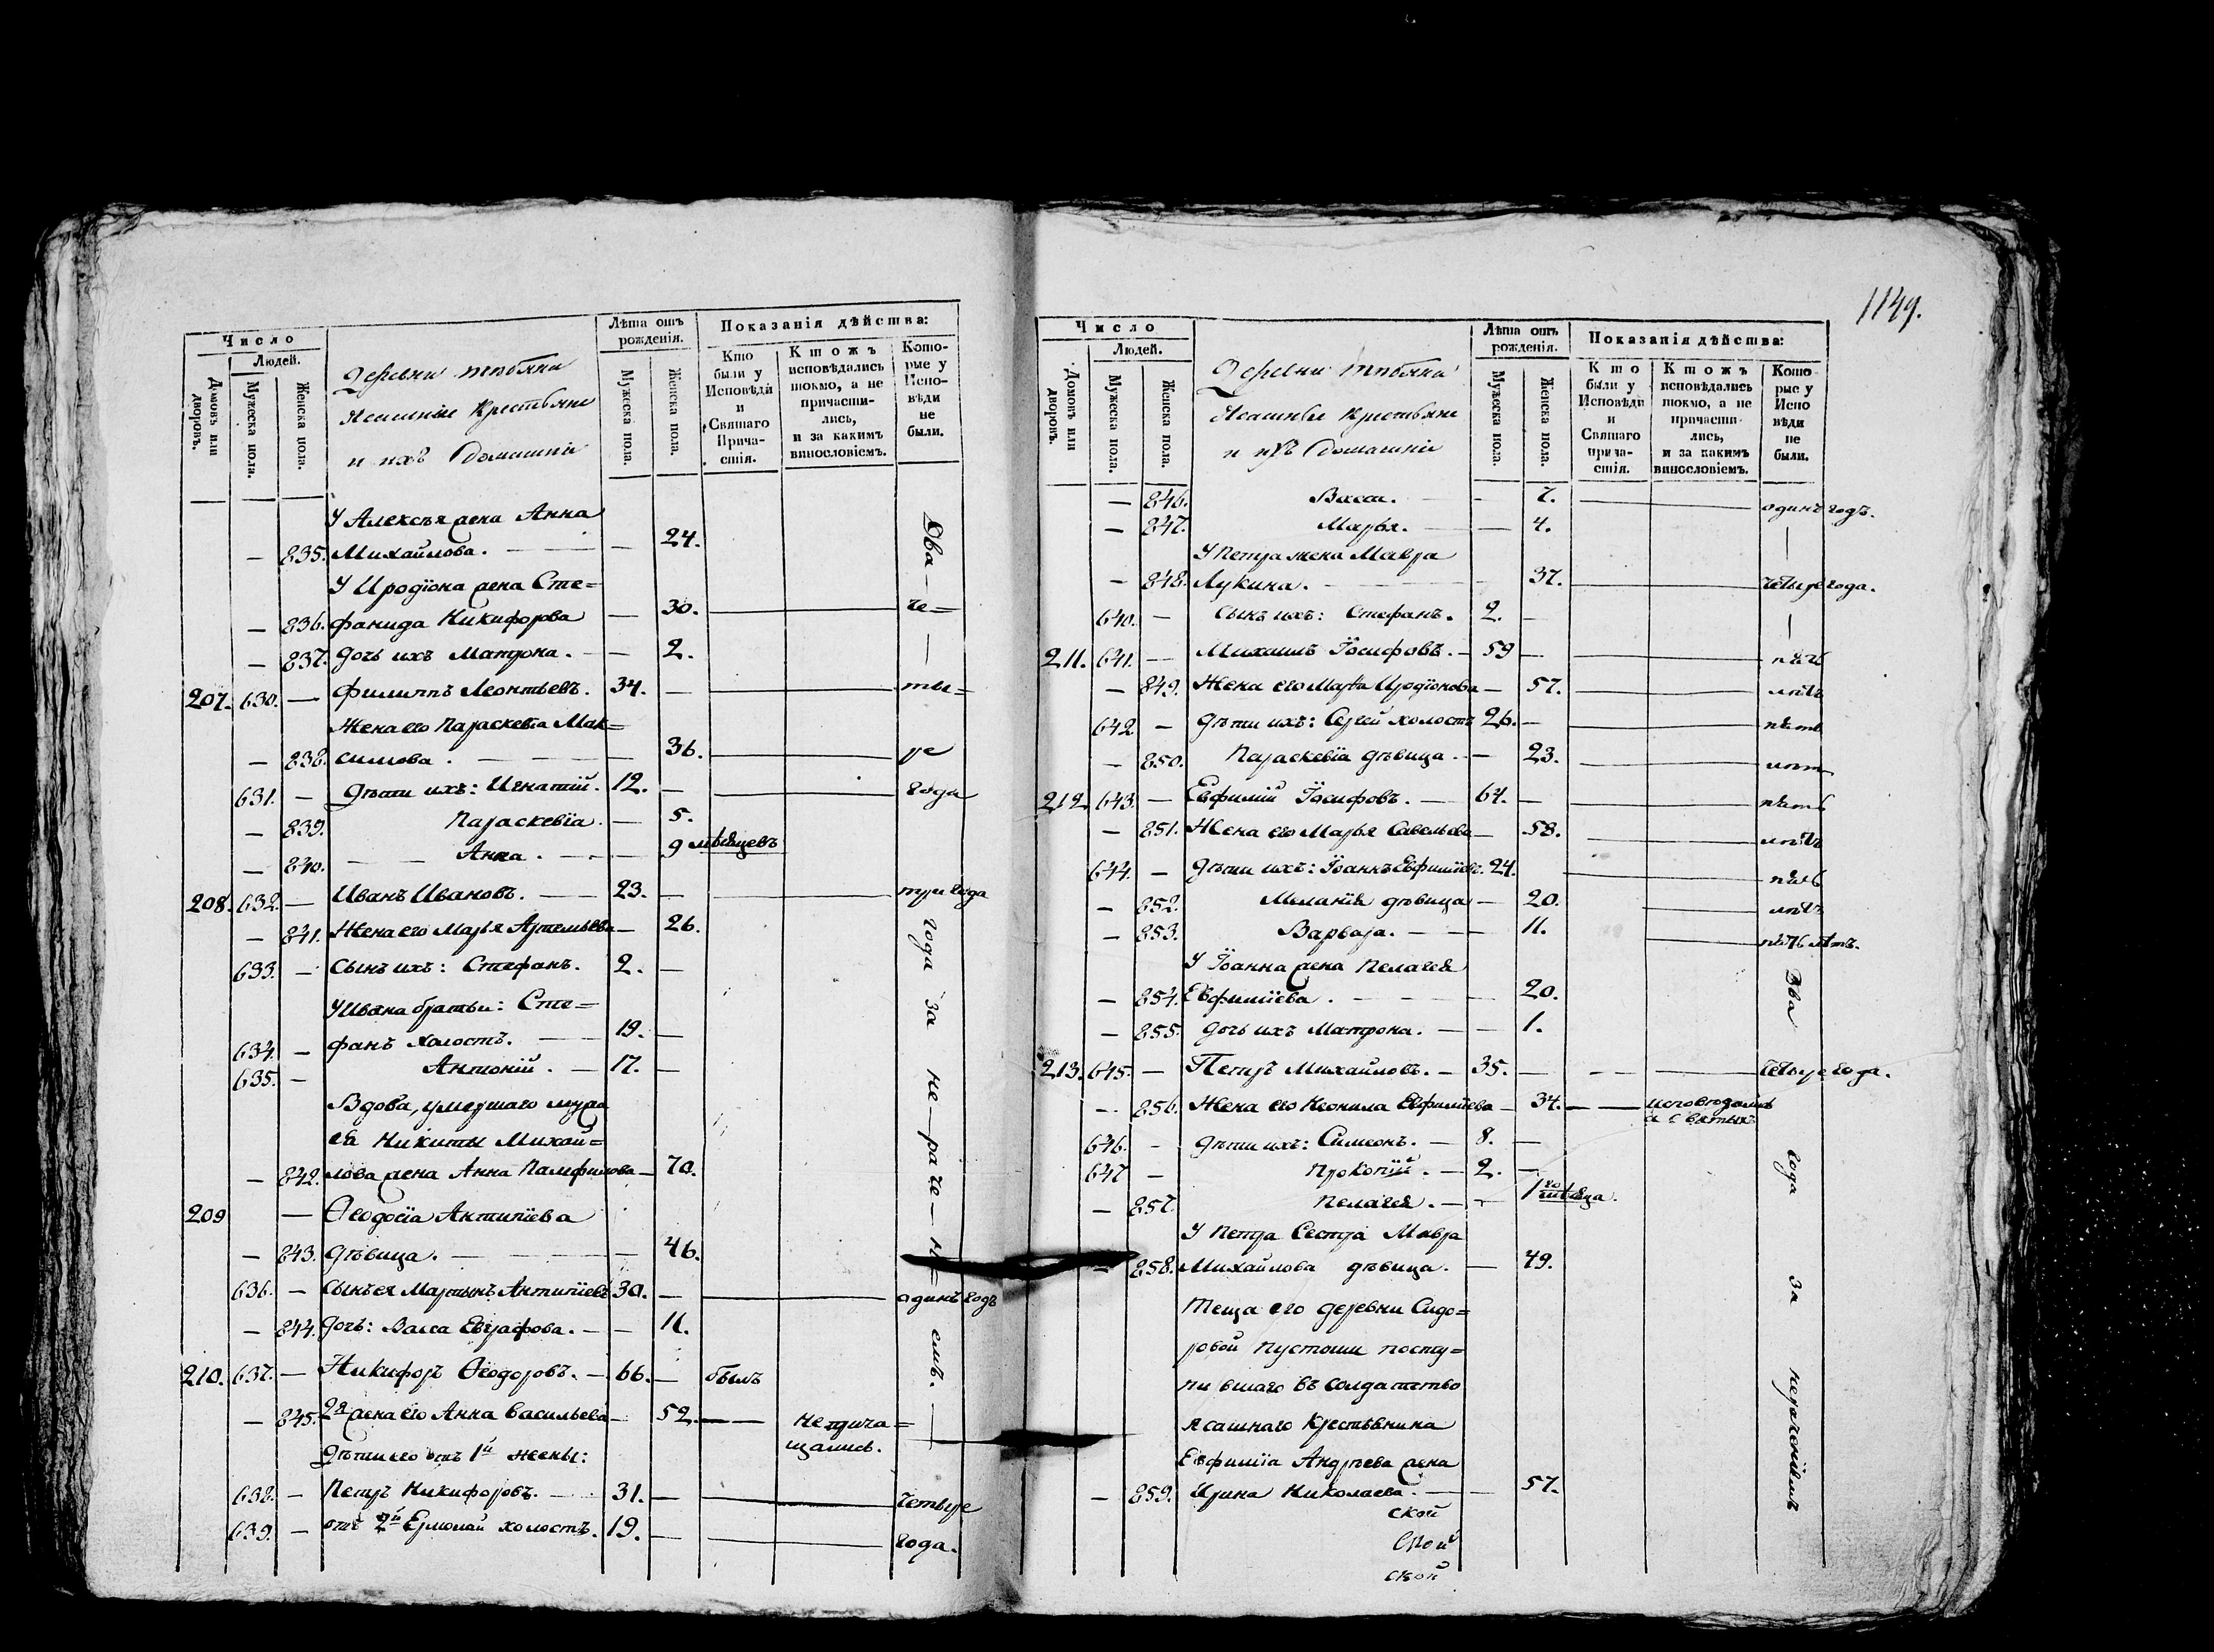 1149.
Число
Людей.
Домовъ или дворовъ.
Мужеска пола.
Женска пола.
Деревни
Ясашные крестьяне
и ихъ домашніе
Лѣта отъ рожденія.
Мужеска пола.
Женска пола.
Показанія дѣйства:
Кто были у Исповѣди и Святаго Причастія.
Ктожъ исповѣдались токмо, а не причастились, и за какимъ винословіемъ.
Которые у Исповѣди не были.
У Алексѣя жена Анна
— 835. Михайлова. — — 24.
У Иродіона жена Сте=
— 836. фанида Никифорова — 30. че=
— 837. дочь ихъ Матрона. — 2.
207. 630. — Филиппъ Леонтьевъ. 34. — ты=
Жена его Параскевіа Мак=
— 838. симова. — 36. ре
631. — дѣти ихъ: Игнатій. 12. — года
— 839. Параскевіа. — 5.
— 840. Анна. — 9 мѣсяцевъ
208. 632. — Иванъ Ивановъ. — 23. — три года
— 841. Жена его Марья Артемьева — 26.
633. — Сынъ ихъ: Стефанъ. 2. —
У Ивана братьи: Сте=
634. — фанъ холостъ. 19. —
635. — Антоній. — 17. —
Вдова, умершаго мужа
ея Никиты Михай=
— 842. лова жена Анна Памфилова — 70.
209 — Ѳеодосіа Антипіева
— 843. дѣвица. — — 46.
636. — Сынъ ея Мартынъ Антипіевъ 30. — одинъ годъ
— 844. дочь: Васса Евграфова. — — 11.
210. 637. — Никифоръ Ѳеодоровъ. — 66. — былъ
— 845. 2я жена его Анна Васильева — 52. — не прича=
щались.
Дѣти его отъ 1й жены:
638. — Петръ Никифоровъ. 31. — четыре
639. — отъ 2й Ермолай холостъ. 19. — года.
Два года за не—ра че—ні= емъ.
Число
Людей.
Домовъ или дворовъ.
Мужеска пола.
Женска пола.
Деревни
Ясашные крестьяне
и ихъ домашніе
Лѣта отъ рожденія.
Мужеска пола.
Женска пола.
Показанія дѣйства:
Кто были у Исповѣди и Святаго причастія.
Ктожъ исповѣдались токмо, а не причастились, и за какимъ винословіемъ.
Которые у Исповѣди не были.
— 846. Васса. — 7. одинъ годъ.
— 847. Марья. — — 4.
У Петра жена Мавра
— 848. Лукина. — 37. четыре года.
640. — сынъ ихъ: Стефанъ. 2. —
211. 641. — Михаилъ Іосифовъ. — 59 — пять
— 849. Жена его Марѳа Иродіонова — 57. лѣтъ
642 — дѣти ихъ: Сергей холостъ 26. — пять
— 850. Параскевіа дѣвица. — 23. лѣтъ
212 643. — Евфимій Іосифовъ. — 64. — пять
— 851. Жена его Марья Савельева — 58. лѣтъ
644. — дѣти ихъ: Іоаннъ Евфиміевъ. 24. пять
— 852. Меланія дѣвица — 20. лѣтъ
— 853. Варвара. — — 11. пять лѣтъ.
У Іоанна жена Пелагея
— 854. Евфиміева. — 20.
— 855. дочь ихъ Матрона. — — 1.
213. 645. — Петръ Михайловъ. — 35. — четыре года.
— 856. Жена его Неонила Евфиміева — 34. — исповѣдались
646. — дѣти ихъ: Симеонъ. — 8. —
647 — Прокопій. — 2. —
— 857. Пелагея. — 1го мѣсяца.
У Петра сестра Мавра
— 858. Михайлова дѣвица. — 49.
Теща его деревни Сидо=
ровой Пустоши посту=
пившаго въ солдатство
ясашнаго крестьянина
Евфиміа Андрѣева жена
— 859. Ирина Николаева. — — 57.
ской
ской
ской
Два года за нераченіемъ